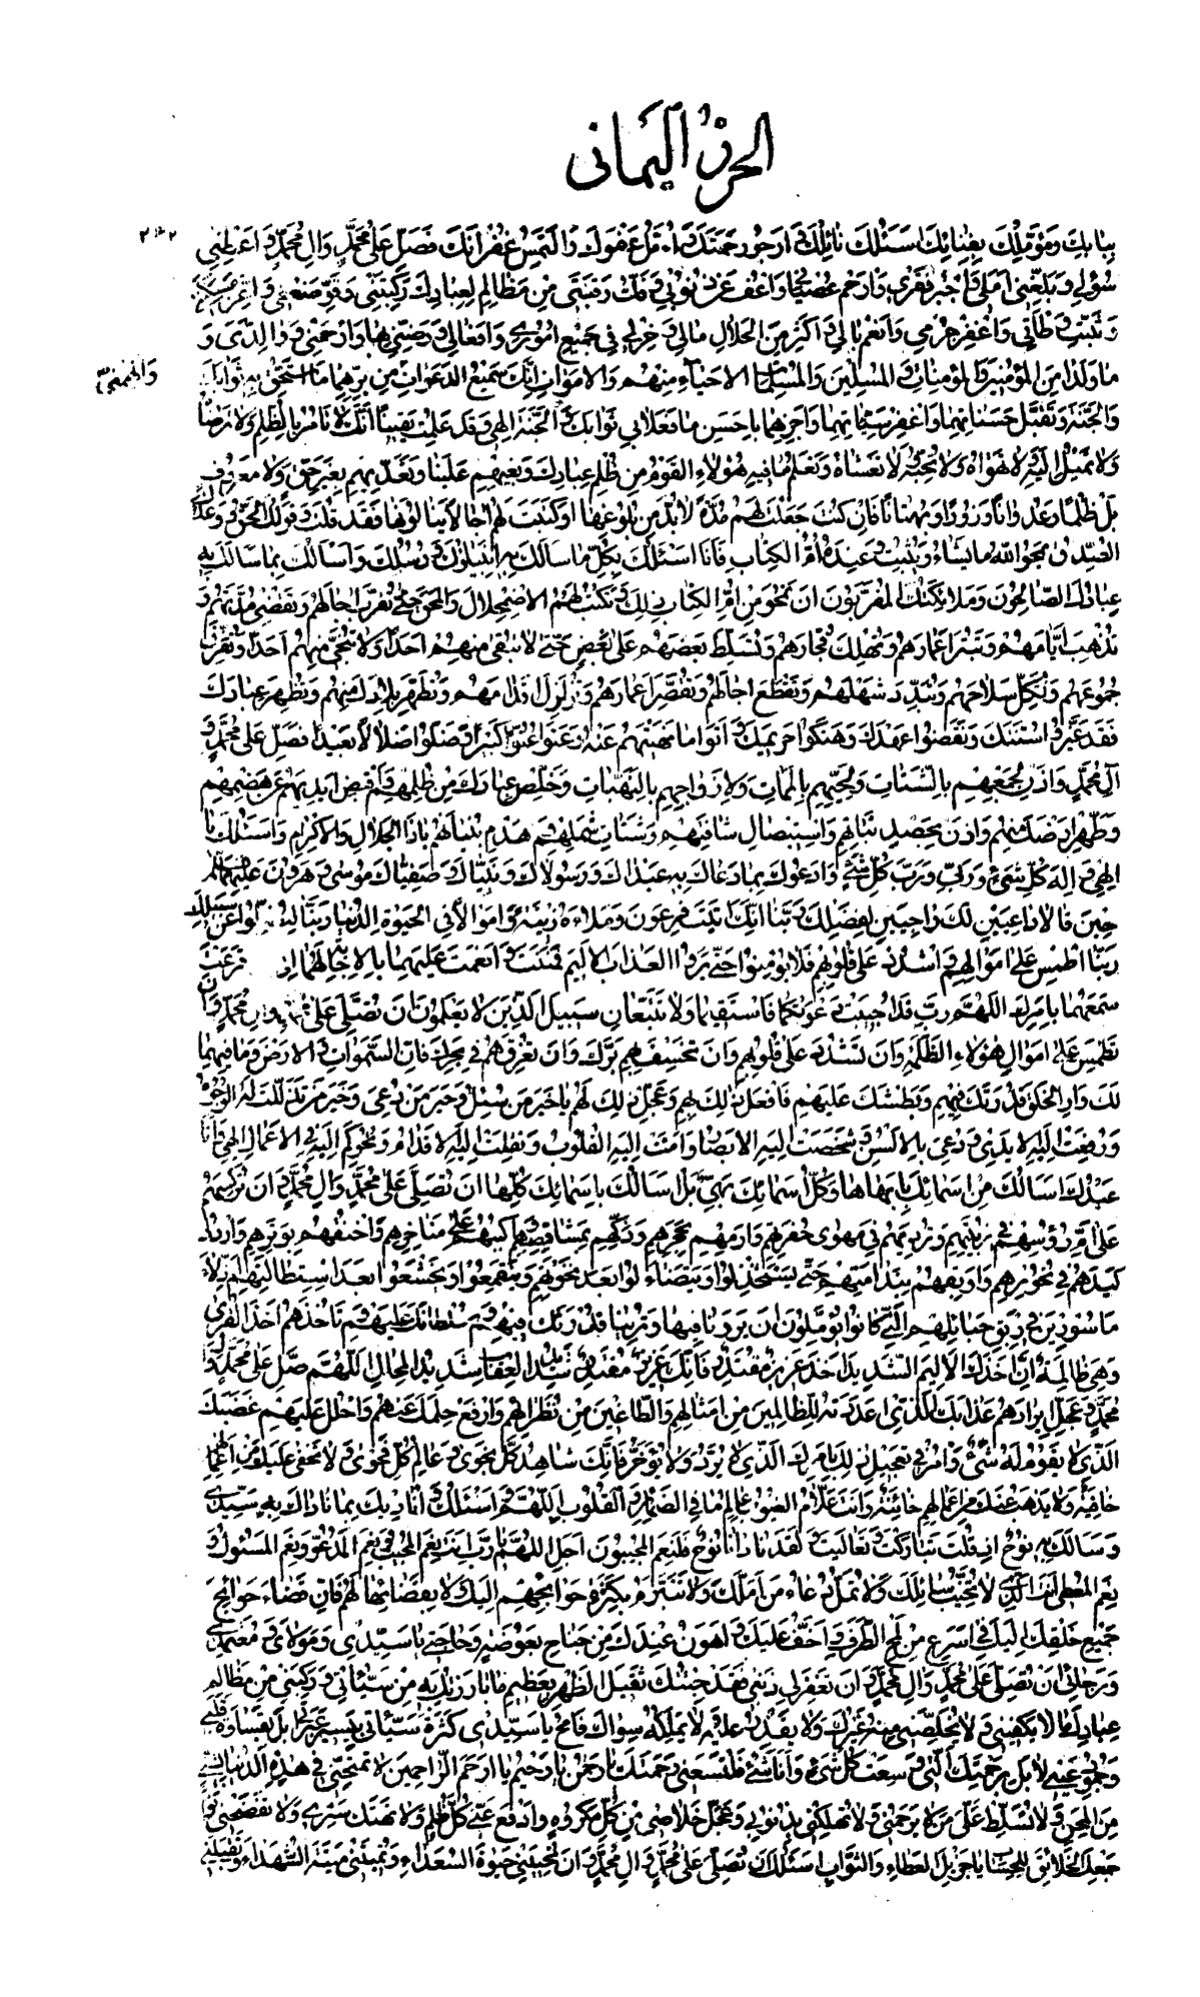 الحرز اليماني
ببابك ومؤملك بفنائك سئلك نائلك و ارجو رحمتك و اؤمل عفوك و التمس غفرانك فصل على محمد وال محمد و اعطني
سؤلي وبلغني املي و اجبر فقري وارحم عصياني واعف عن ذنوبي و فك رقبتي من مظالم لعبادك ركبتني وقو ضعفي و اعز مسكنتي
وثبت وطأتي واغفر جرمي وانعم بالي و اكثر من الحلال مالي و خر لي في جميع اموري وافعالي و رضني بها وارحمني و والدي و
والهمني
ما ولدا من المؤمنين و المؤمنات و المسلمين والمسلمات الاحياء منهم والاموات انك سميع الدعوات من برهما ما استحق به ثوابك
والجنة وتقبل حسناتهما واغفر سيئاتهما واجزهما باحسن ما فعلا بي ثوابك و الجنة الهي وقد علمت يقينا انك لا تامر بالظلم ولا ترضاه
ولا تميل اليه ولا تهواه ولا تحبه ولا تغشاه وتعلم ما فيه هؤلاء القوم من ظلم عبادك وبغيهم علينا وتعديهم بغير حق ولا معروف
بل ظلما وعدوانا وزورا وبهتانا فان كنت جعلت لهم مدة لا بد من بلوغها او كتبت لهم اجالا ينالونها فقد قلت و قولك الحق و وعدك
الصدق يمحو الله ما يشاء ويثبت و عنده ام الكتاب فانا اسئلك بكل ما سالك به انبياؤك و رسلك واسالك بما سالك به
عبادك الصالحون وملائكتك المقربون ان تمحو من ام الكتاب ذلك و تكتب لهم الاضمحلال والمحق حتى تقرب اجالهم وتقضي مدتهم و
تذهب ايامهم وتبتر اعمارهم وتهلك فجارهم وتسلط بعضهم على بعض حتى لا تبقي منهم احدا ولا تنجي منهم احدا وتفرق
جموعهم وتكل سلاحهم وتبدد شملهم وتقطع اجالهم وتقصر اعمارهم وتزلزل اقدامهم وتطهر بلادك منهم وتظهر عبادك
فقد غيروا سنتك ونقضوا عهدك وهتكوا حريمك و اتوا ما نهيتهم عنه وعتوا عتوا كبيرا وضلوا ضلالا بعيدا فصل على محمد و
آل محمد واذن لجمعهم بالشتات ولحيهم بالممات ولازواجهم بالنهبات وخلص عبادك من ظلمهم واقبض ايديهم عن هضمهم
وطهر ارضك منهم واذن بحصد نباتهم واستيصال شافتهم وشتات شملهم وهدم بنيانهم ياذا الجلال والاكرام واسئلك يا
الهي و اله كل شيء وربي ورب كل شيء وادعوك بما دعاك به عبداك ورسولاك ونبياك وصفياك موسى وهرون عليهما السلام
حين قالا داعيين لك راجيين لفضلك ربنا انك اتيت فرعون وملاءه زينة واموالا في الحيوة الدنيا ربنا ليضلوا عن سبيلك
ربنا اطمس على اموالهم و اشدد على قلوبهم فلا يؤمنوا حتى يروا العذاب الاليم فمننت و انعمت عليهما بالاجابة لهما ان قرعت
سمعهما بامرك اللهم رب قد اجيبت دعوتكما فاستقيما ولا تتبعان سبيل الذين لا يعلمون ان تصلي على محمد وال محمد وان
تطمس على اموال هؤلاء الظلمة وان تشدد على قلوبهم وان تخسف بهم برك وان تغرقهم في بحرك فان السموات و الارض وما فيهما
لك وار الخلق قدرتك فيهم وبطشك عليهم فافعل ذلك بهم وعجل ذلك لهم يا خير من سئل وخير من دعي وخير من تذللت له الوجوه
ورفعت اليه الايدي ودعي بالالسن و شخصت اليه الابصار وامت اليه القلوب ونقلت اليه الاقدام وتحوكم اليه في الاعمال الهي وانا
عبدك اسالك من اسمائك بابهاها وكل اسمائك بهي بل اسالك باسمائك كلها ان تصلي على محمد وال محمد و ان تركسهم
على ام رؤسهم في زبيتهم وترديهم في مهوى حفرتهم وارمهم بحجرهم وذكهم بمشاقصهم و اكببهم على مناخرهم واخنقهم بوترهم واردد
كيدهم في نحورهم واوبقهم بندامتهم حتى يستخذلوا ويتضاءلوا بعد نخوتهم وينقمعوا ويخشعوا بعد استطالتهم اذلاء
ماسورين في ربق حبائلهم التي كانوا يؤملون ان يرونا فيها وترينا قدرتك فيهم و سلطانك عليهم وتاخذهم اخذ القرى
وهي ظالمة ان اخذك الاليم الشديد اخذ عزيز مقتدر فانك عزيز مقتدر شديد العقاب شديد المحال اللهم صل على محمد وال
محمد و عجل ايرادهم عذابك الذي اعددته للظالمين من امثالهم والطاغين من نظرائهم وارفع حلمك عنهم واحلل عليهم غضبك
الذي لا يقوم له شيء وامر في تعجيل ذلك بامرك الذي لا يرد ولا يؤخر فانك شاهد كل نجوى وعالم كل فحوى ولا تخفى عليك من اعمالهم
خافية ولا يذهب عنك من اعمالهم خائنة وانت علام الغيوب عالم ما في الضمائر و القلوب اللهم و اسئلك و اناديك بما ناداك به سيدي
وسالك به نوح اذ قلت تباركت و تعاليت و لقد نادانا نوح فلنعم المجيبون اجل اللهم يا رب انت نعم المجيب و نعم المدعو ونعم المسئول و
نعم المعطي انت الذي لا تخيب سائلك ولا تمل دعاء من املك ولا تتبرم بكثرة حوائجهم اليك ولا بقضائها لهم فان قضاء حوائج
جميع خلقك اليك في اسرع من لمح الطرف و اخف عليك و اهون عندك من جناح بعوضة وحاجتي يا سيدي ومولاي و معتمدي
ورجائي ان تصلي على محمد وال محمد و ان تغفر لي ذنبي فقد جئتك ثقيل الظهر بعظيم ما بارزتك به من سيئاتي و ركبني من مظالم
عبادك ما لا يكفيني و لا يخلصني منه غيرك ولا يقدر عليه ولا يملكه سواك فامح يا سيدي كثرة سيئاتي بيسير عبراتي بل بقساوة قلبي
وجمود عيني لا بل برحمتك التي وسعت كل شيء وانا شيء فلتسعني رحمتك يا رحمن يا رحيم يا ارحم الراحمين لا تمتحني في هذه الدنيا بشيء
من المحن و لا تسلط علي من لا يرحمني ولا تهلكني بذنوبي وعجل خلاصي من كل مكروه وادفع عني كل ظلم ولا تهتك ستري ولا تفضحني يوم
جمعك الخلائق للحساب يا جزيل العطاء والثواب اسئلك ان تصلي على محمد و ال محمد و ان تحييني حيوة السعداء وتميتني ميتة الشهداء وتقبلني